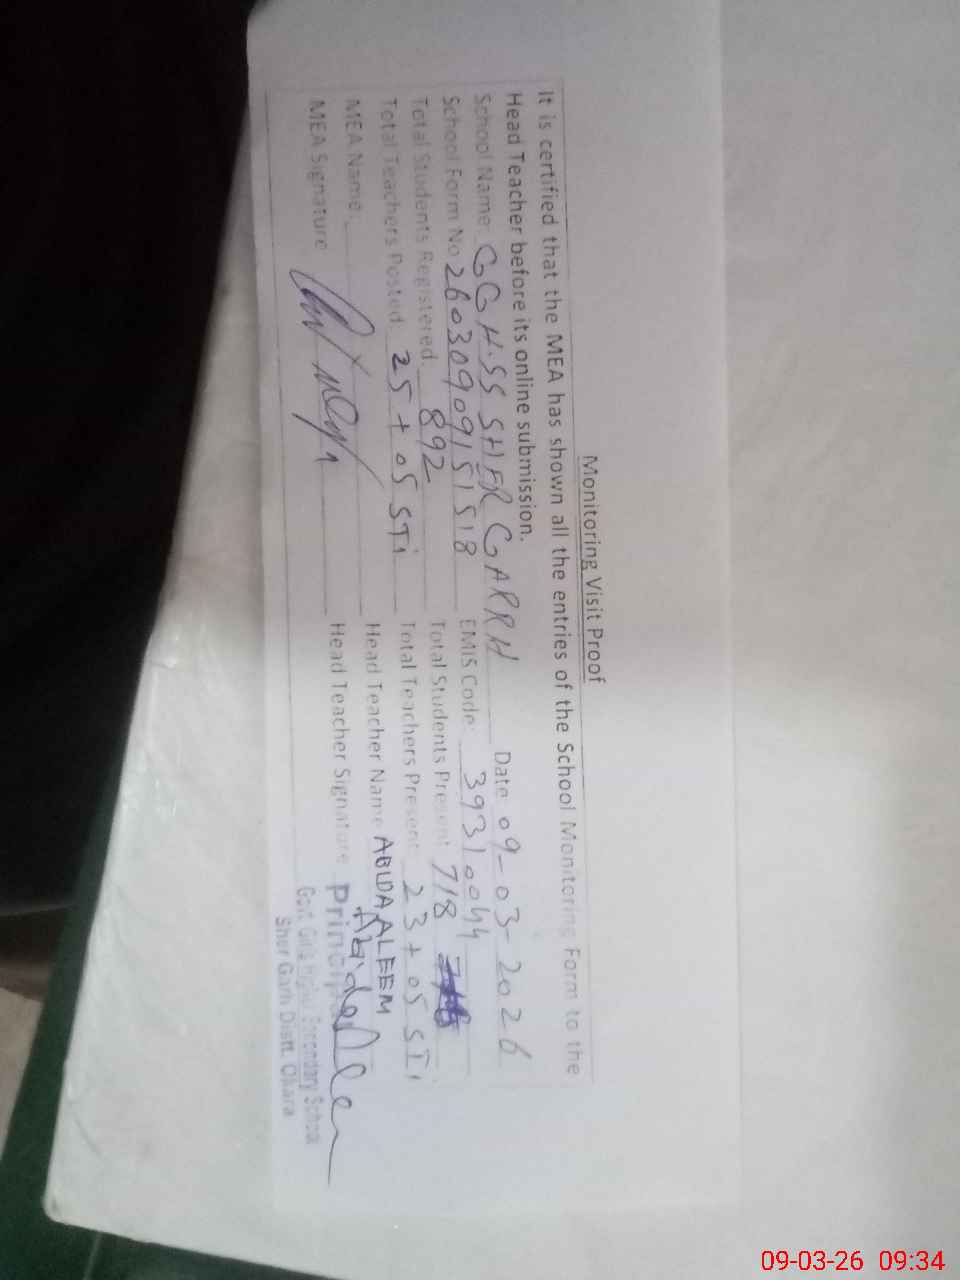 Monitoring Visit Proof
It is certified that the MEA has shown all the entries of the School Monitoring Form to the
Head Teacher before its online submission.
School Name: GGHSS SHER GARRH Date: 09-03-2026
School Form No 26030909151518 EMIS Code: 39310044
Total Students Registered: 892 Total Students Present 718
Total Teachers Posted: 25 + 05 STI Total Teachers Present: 23 + 05 STI
MEA Name: Head Teacher Name ABIDA ALEEM
MEA Signature Head Teacher Signature
Principal
Govt. Girls Higher Secondary School
Sher Garh Distt. Okara
09-03-26 09:34